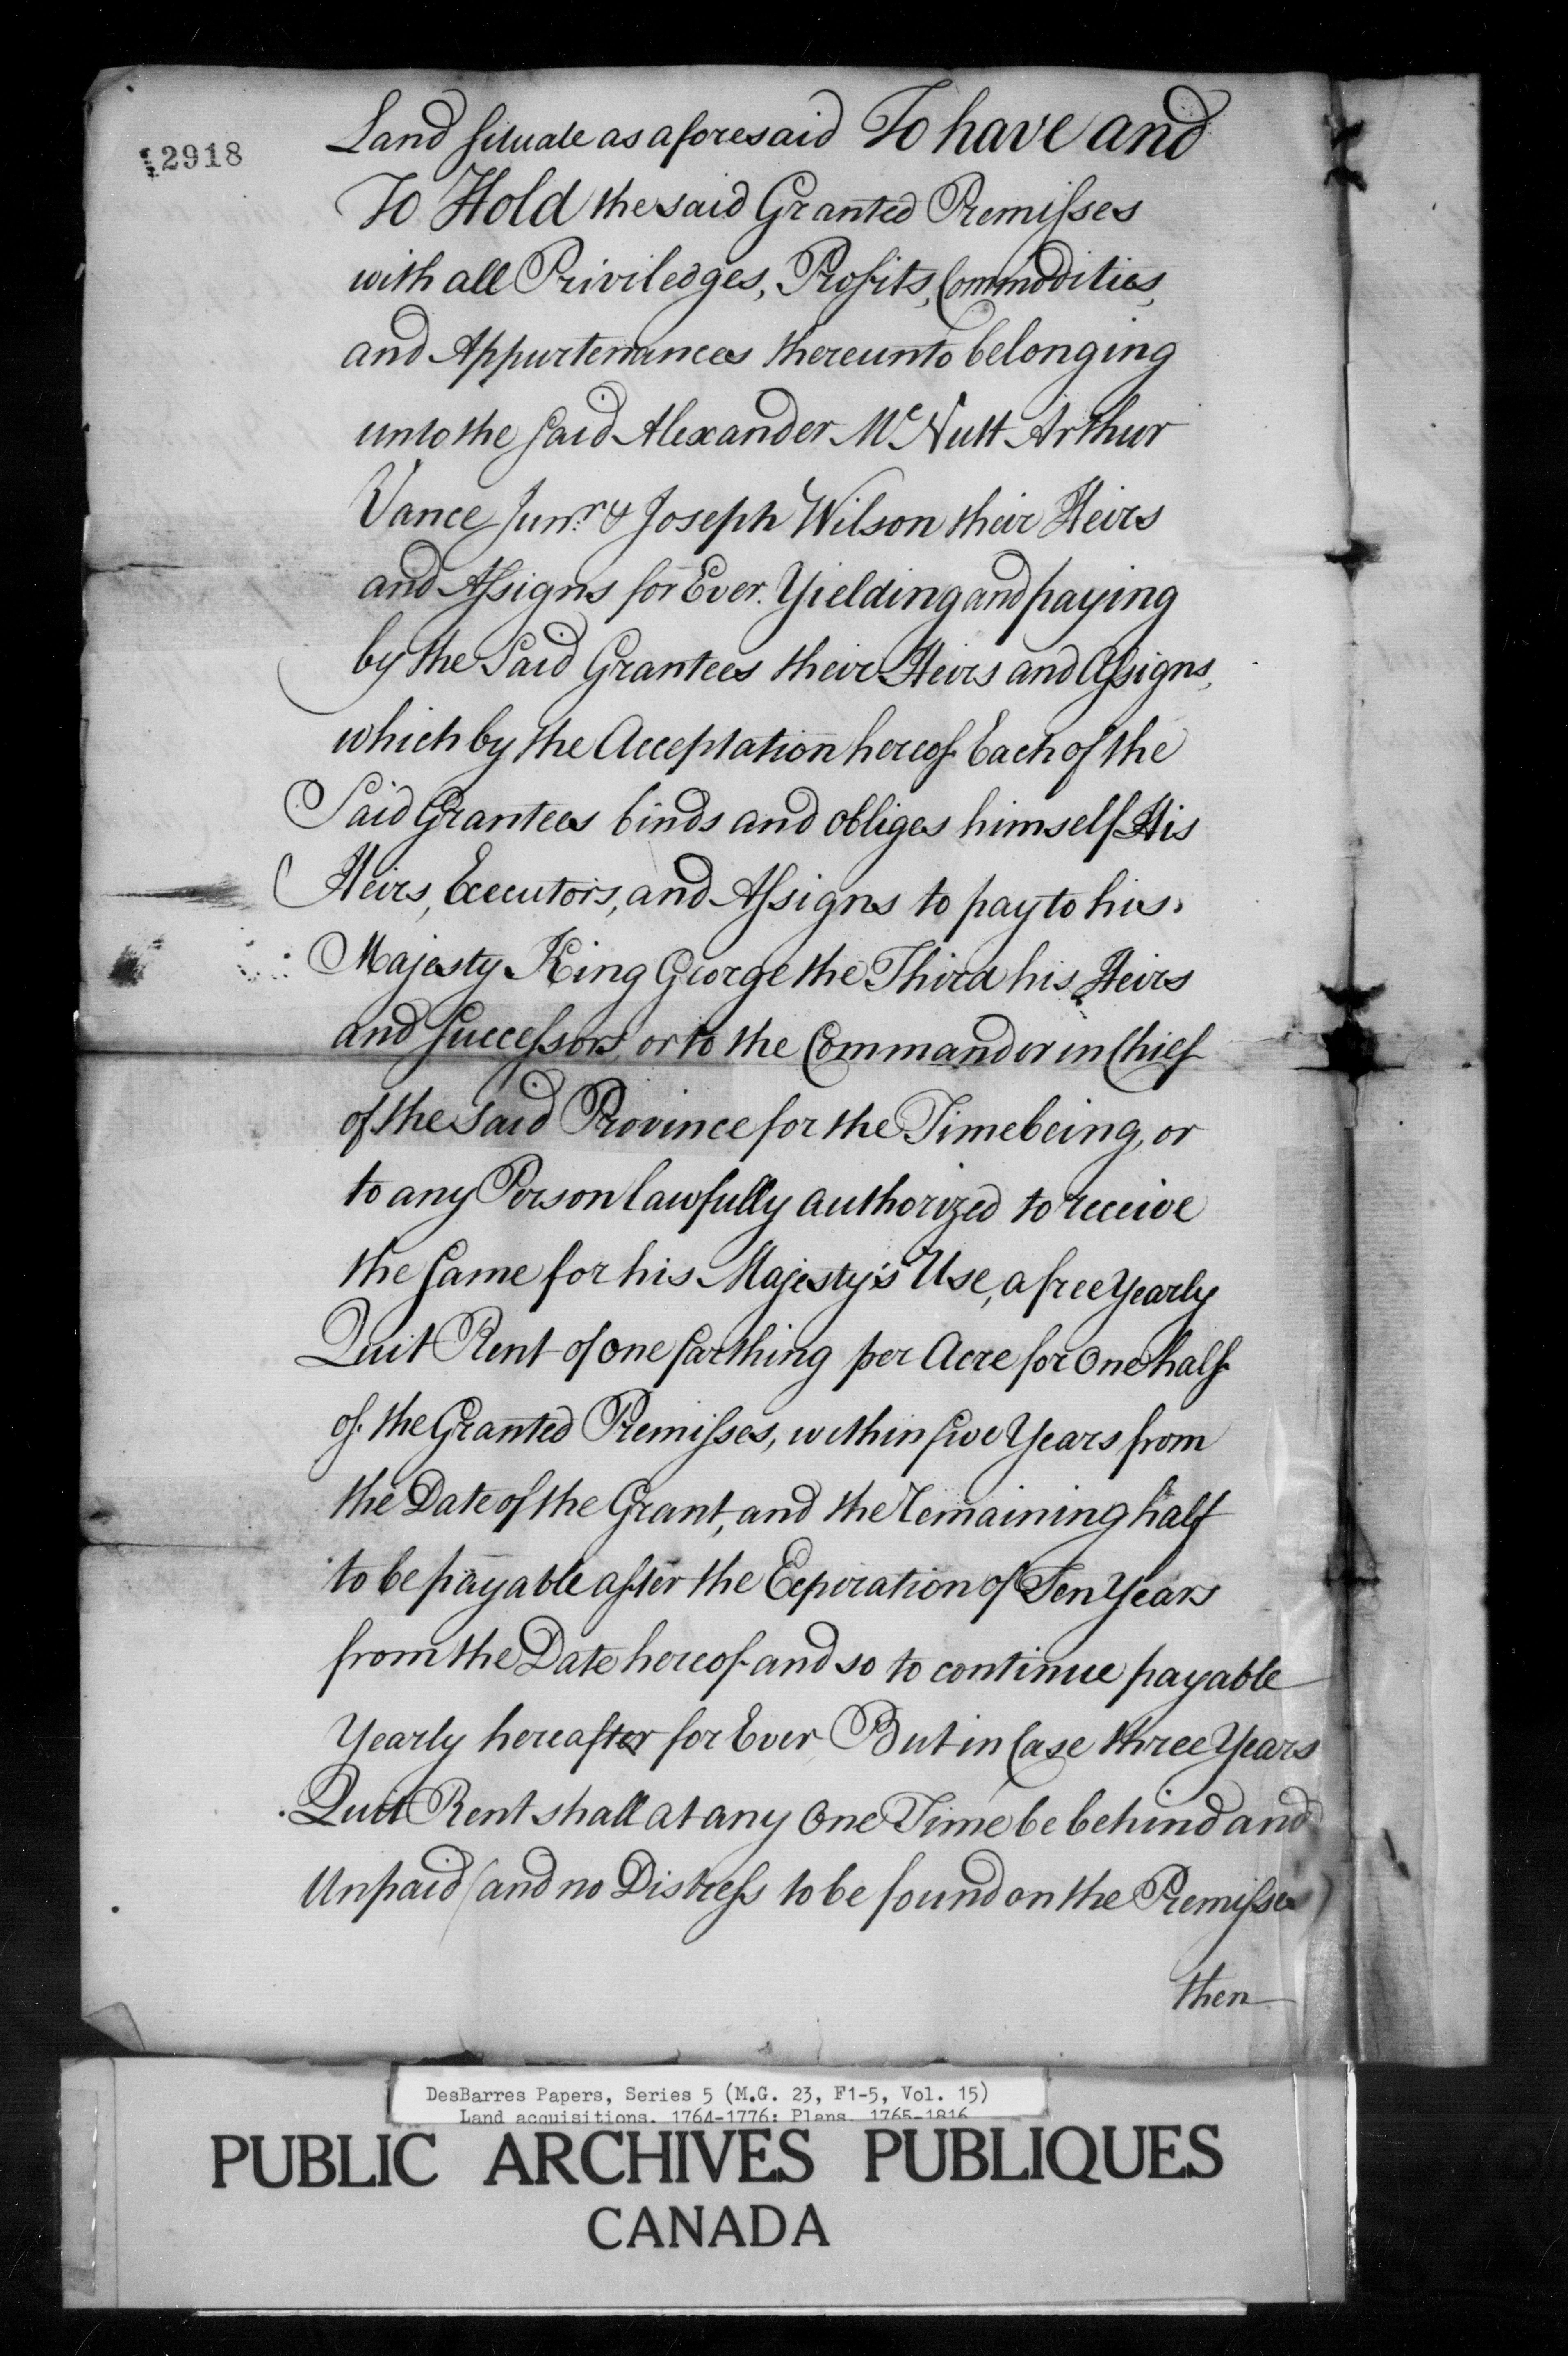 2918
Land situate as aforesaid To have and
To Hold the said Granted Premisses
with all Priviledges, Profits, Commodities,
and Appurtenances thereunto belonging
unto the Said Alexander McNutt Arthur
Vance Junr. & Joseph Wilson their Heirs
and Assigns for Ever. Yielding and paying
by the Said Grantees their Heirs and Assigns,
which by the Acceptation hereof Each of the
Said Grantees binds and obliges himself His
Heirs, Executors, and Assigns to pay to his
Majesty King George the Third his Heirs
and Successors, or to the Commander in Chief
of the Said Province for the Time being, or
to any Person lawfully authorized to receive
the Same for his Majesty's Use, a free Yearly
Quit Rent of one farthing per Acre for One half
of the Granted Premisses, within five Years from
the Date of the Grant, and the Remaining half
to be payable after the Expiration of Ten Years
from the Date hereof and so to continue payable
Yearly hereafter for Ever But in Case three Years
Quit Rent shall at any One Time be behind and
Unpaid (and no Distress to be found on the Premisses)
then
DesBarres Papers, Series 5 (M.G. 23, F1-5, Vol. 15)
Land acquisitions, 1764-1776; Plans, 1765-1816
PUBLIC ARCHIVES PUBLIQUES
CANADA